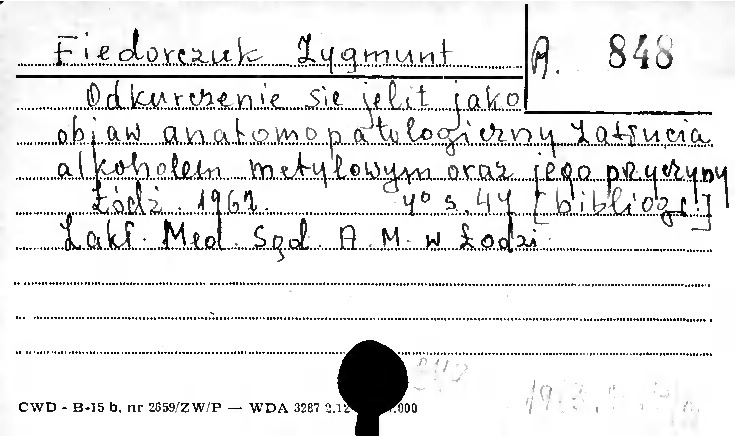 Fiedorczuk Zygmunt
A. 848
Odkurczenie się jelit jako
objaw anatomopatologiczny zatrucia
alkoholem metylowym oraz jego przyczyny
Łódź. 1967. 4° s. 44 [bibliogr.]
Zakł. Med. Sąd. A. M. w Łodzi
CWD - B-15 b, nr 2659/ZW/P — WDA 3287 2.12 .000